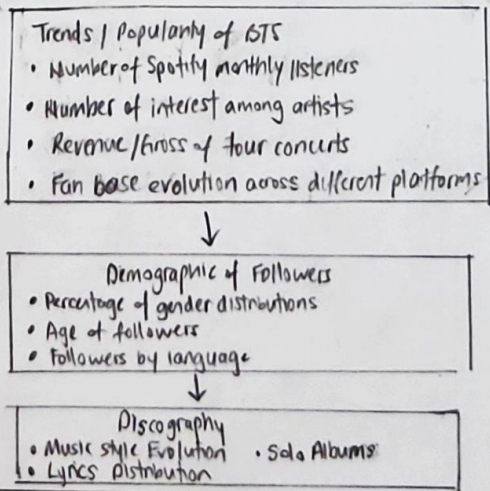 Trends / Popularity of BTS
• Number of Spotify monthly listeners
• Number of interest among artists
• Revenue/Gross of tour concerts
• Fan base evolution across different platforms
Demographic of Followers
• Percentage of gender distributions
• Age of followers
• Followers by language
Discography
• Music style Evolution • Solo Albums
• Lyrics Distribution